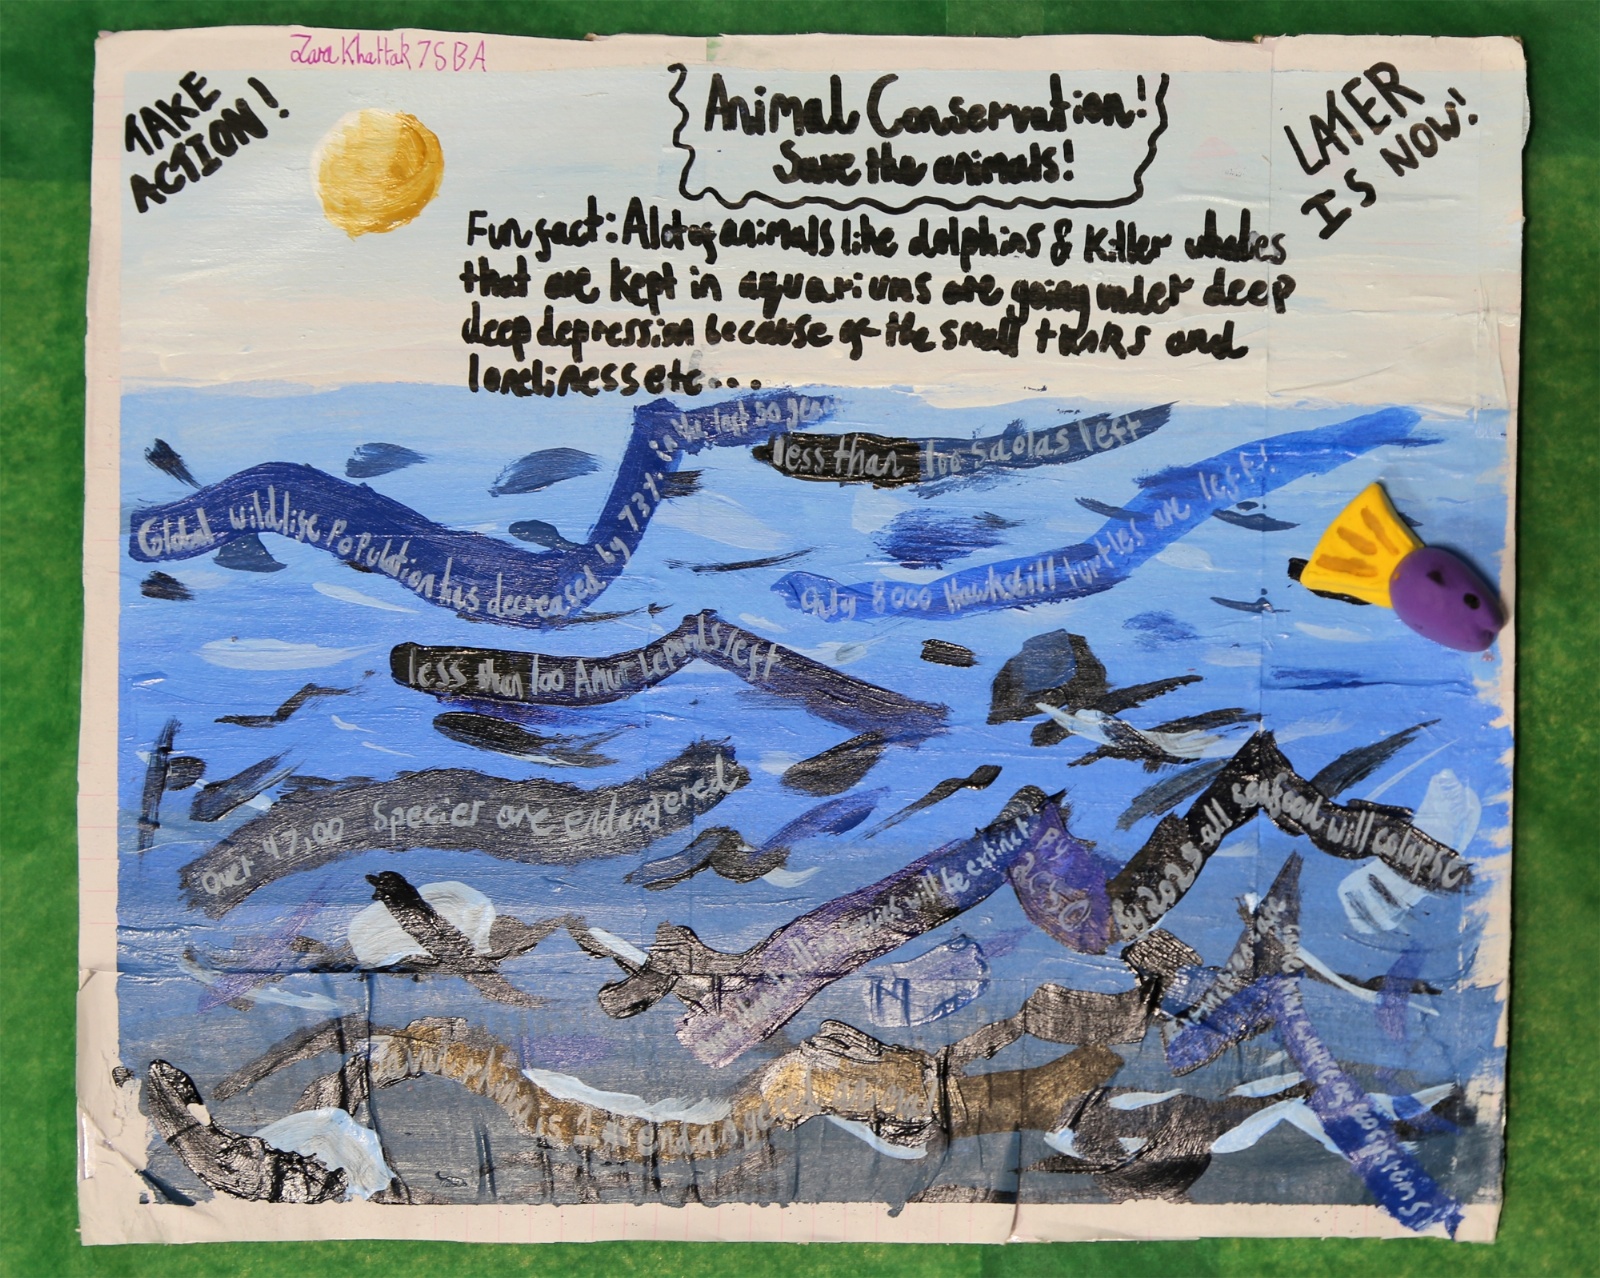 Zara Khattak 7SBA
TAKE
ACTION!
Animal Conservation!
Save the animals!
LATER
IS NOW!
Fun fact: Alot of animals like dolphins & killer whales
that are kept in aquariums are going under deep
deep depression because of the small tanks and
loneliness etc...
Global wildlife Population has decreased by 73% in the last 50 years
less than 100 Saolas left
Only 8000 Hawksbill turtles are left!
less than 100 Amur Lepords left
Over 47,00 Species are endangered
will be extinct By
2050
all seafood will colapse
ecosystems